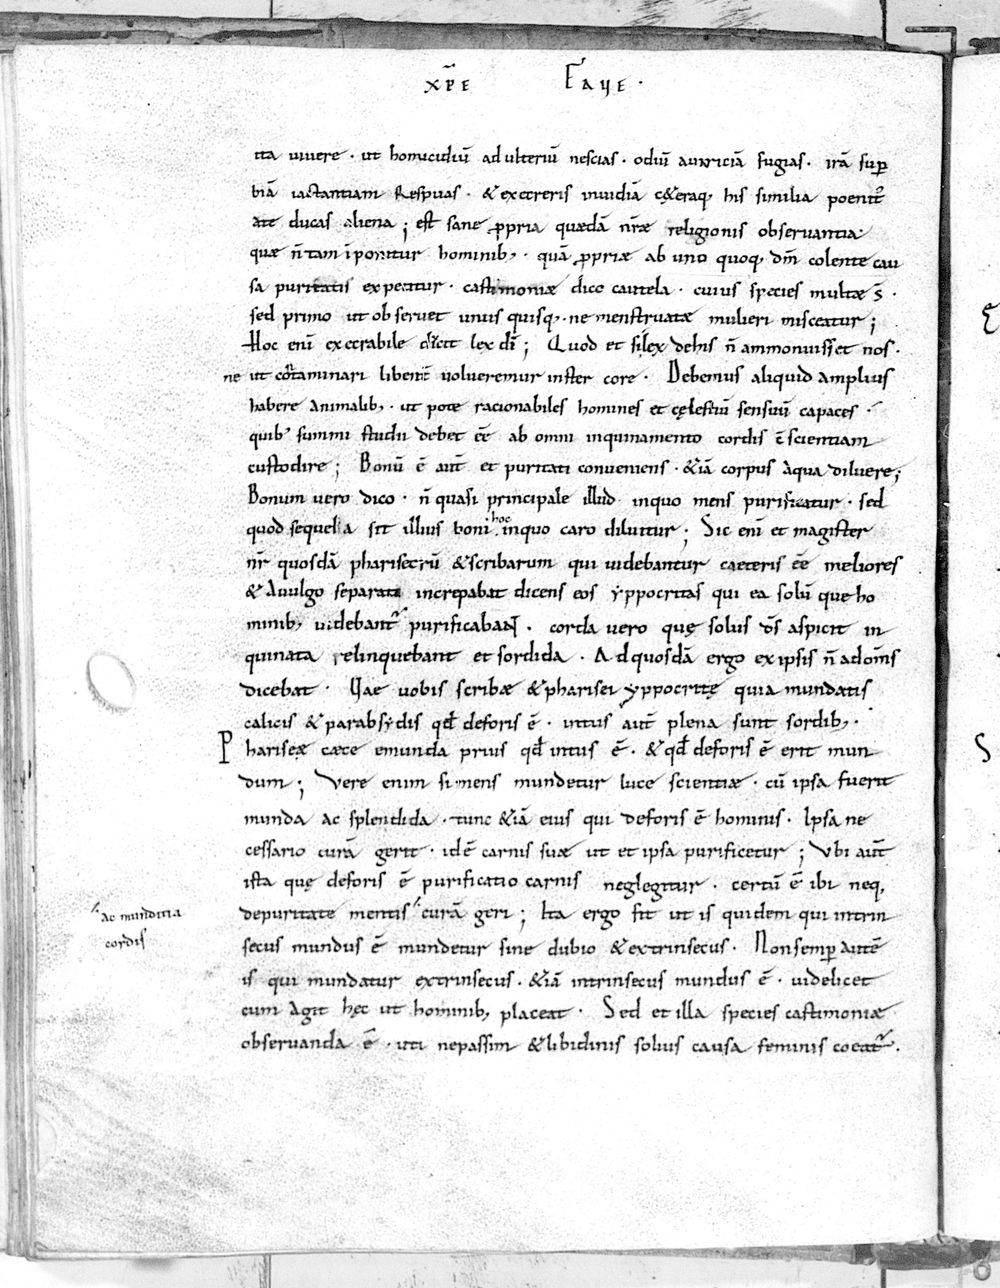 xp̄e Faue ·
ita uiuere · ut homicidiū adulteriū nescias · odiū auariciā fugias · irā suꝑ
biā iactantiam Respuas · & exccreris inuidiā c&eraq; his similia poenit᷒
ate ducas aliena ; est sane ꝓpria quædā nr̄æ religionis obseruantia ·
quæ ñ tam īponitur hominib; · quā ꝓpriæ ab uno quoq; dm̄ colente cau
sa puritatis expeatur · castimoniæ dico cautela · cuius species multæ s̄ ·
sed primo ut obseruet unus quisq; · ne menstruatæ mulieri misceatur ;
Hoc enī exccrabile dicit lex dī ; Quod et si lex de his ñ ammonuisset nos ·
ne ut cōtaminari libent̄ uolueremur inster core · Debemus aliquid amplius
habere animalib; · ut pote racionabiles homines et cęlestiū sensuū capaces ·
quib᷒ summi studii debet eē ab omni inquinamento cordis c̄scientiam
custodire ; Bonū ē aut̄ et puritati conueniens · &iā corpus aqua diluere ;
Bonum uero dico · ñ quasi principale illud inquo mens purificatur · sed
quod sequela sit illius boni hoc inquo caro diluitur ; Sic enī et magister
nr̄ quosdā phariseorū &scribarum qui uidebantur caeteris eē meliores
& auulgo separati increpabat dicens eos yppocritas qui ea solū que ho
minib; uidebant᷒ purificabant · corda uero quę solus d̄s aspicit in
quinata relinquebant et sordida · Ad quosdā ergo ex ipsis ñ ad om̄s
dicebat · Uae uobis scribæ &pharisei yppocritę quia mundatis
calicis &parabsydis qđ deforis ē · intus aut̄ plena sunt sordib; ·
Phariseæ cæce emunda prius qđ intus ē · &qđ deforis ē erit mun
dum ; Vere enim si mens mundetur luce scientiæ · cū ipsa fuerit
munda ac splendida · tunc &iā eius qui deforis ē hominis · Ipsa ne
cessario curā gerit · idē carnis suæ ut et ipsa purificetur ; Vbi aut̄
ista quę deforis ē purificatio carnis neglegitur · certū ē ibi neq;
depuritate mentis curā geri ; Ita ergo fit ut is quidem qui intrin
ac munditia
cordis
secus mundus ē mundetur sine dubio &extrinsecus · Non semꝑ autē
is qui mundatur extrinsecus · &iā intrinsecus mundus ē · uidelicet
cum agit hęc ut hominib; placeat · Sed et illa species castimoniæ
obseruanda ē · uti nepassim &libidinis solius causa feminis coeat᷒ ·